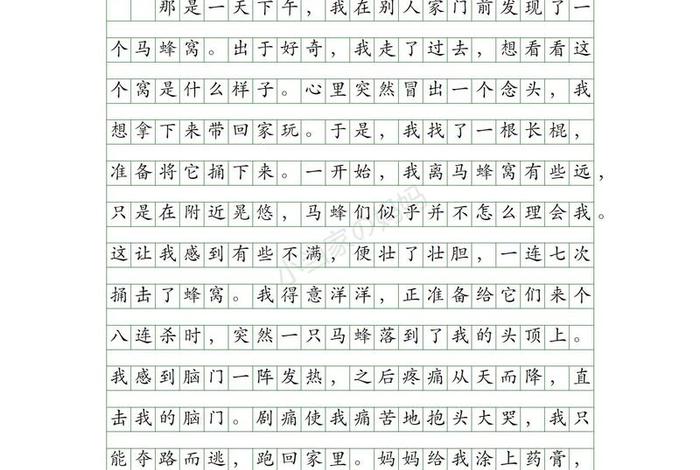 那是一天下午，我在别人家门前发现了一
个马蜂窝。出于好奇，我走了过去，想看看这
个窝是什么样子。心里突然冒出一个念头，我
想拿下来带回家玩。于是，我找了一根长棍，
准备将它捅下来。一开始，我离马蜂窝有些远，
只是在附近晃悠，马蜂们似乎并不怎么理会我。
这让我感到有些不满，便壮了壮胆，一连七次
捅击了蜂窝。我得意洋洋，正准备给它们来个
八连杀时，突然一只马蜂落到了我的头顶上。
我感到脑门一阵发热，之后疼痛从天而降，直
击我的脑门。剧痛使我痛苦地抱头大哭，我只
能夺路而逃，跑回家里。妈妈给我涂上药膏，